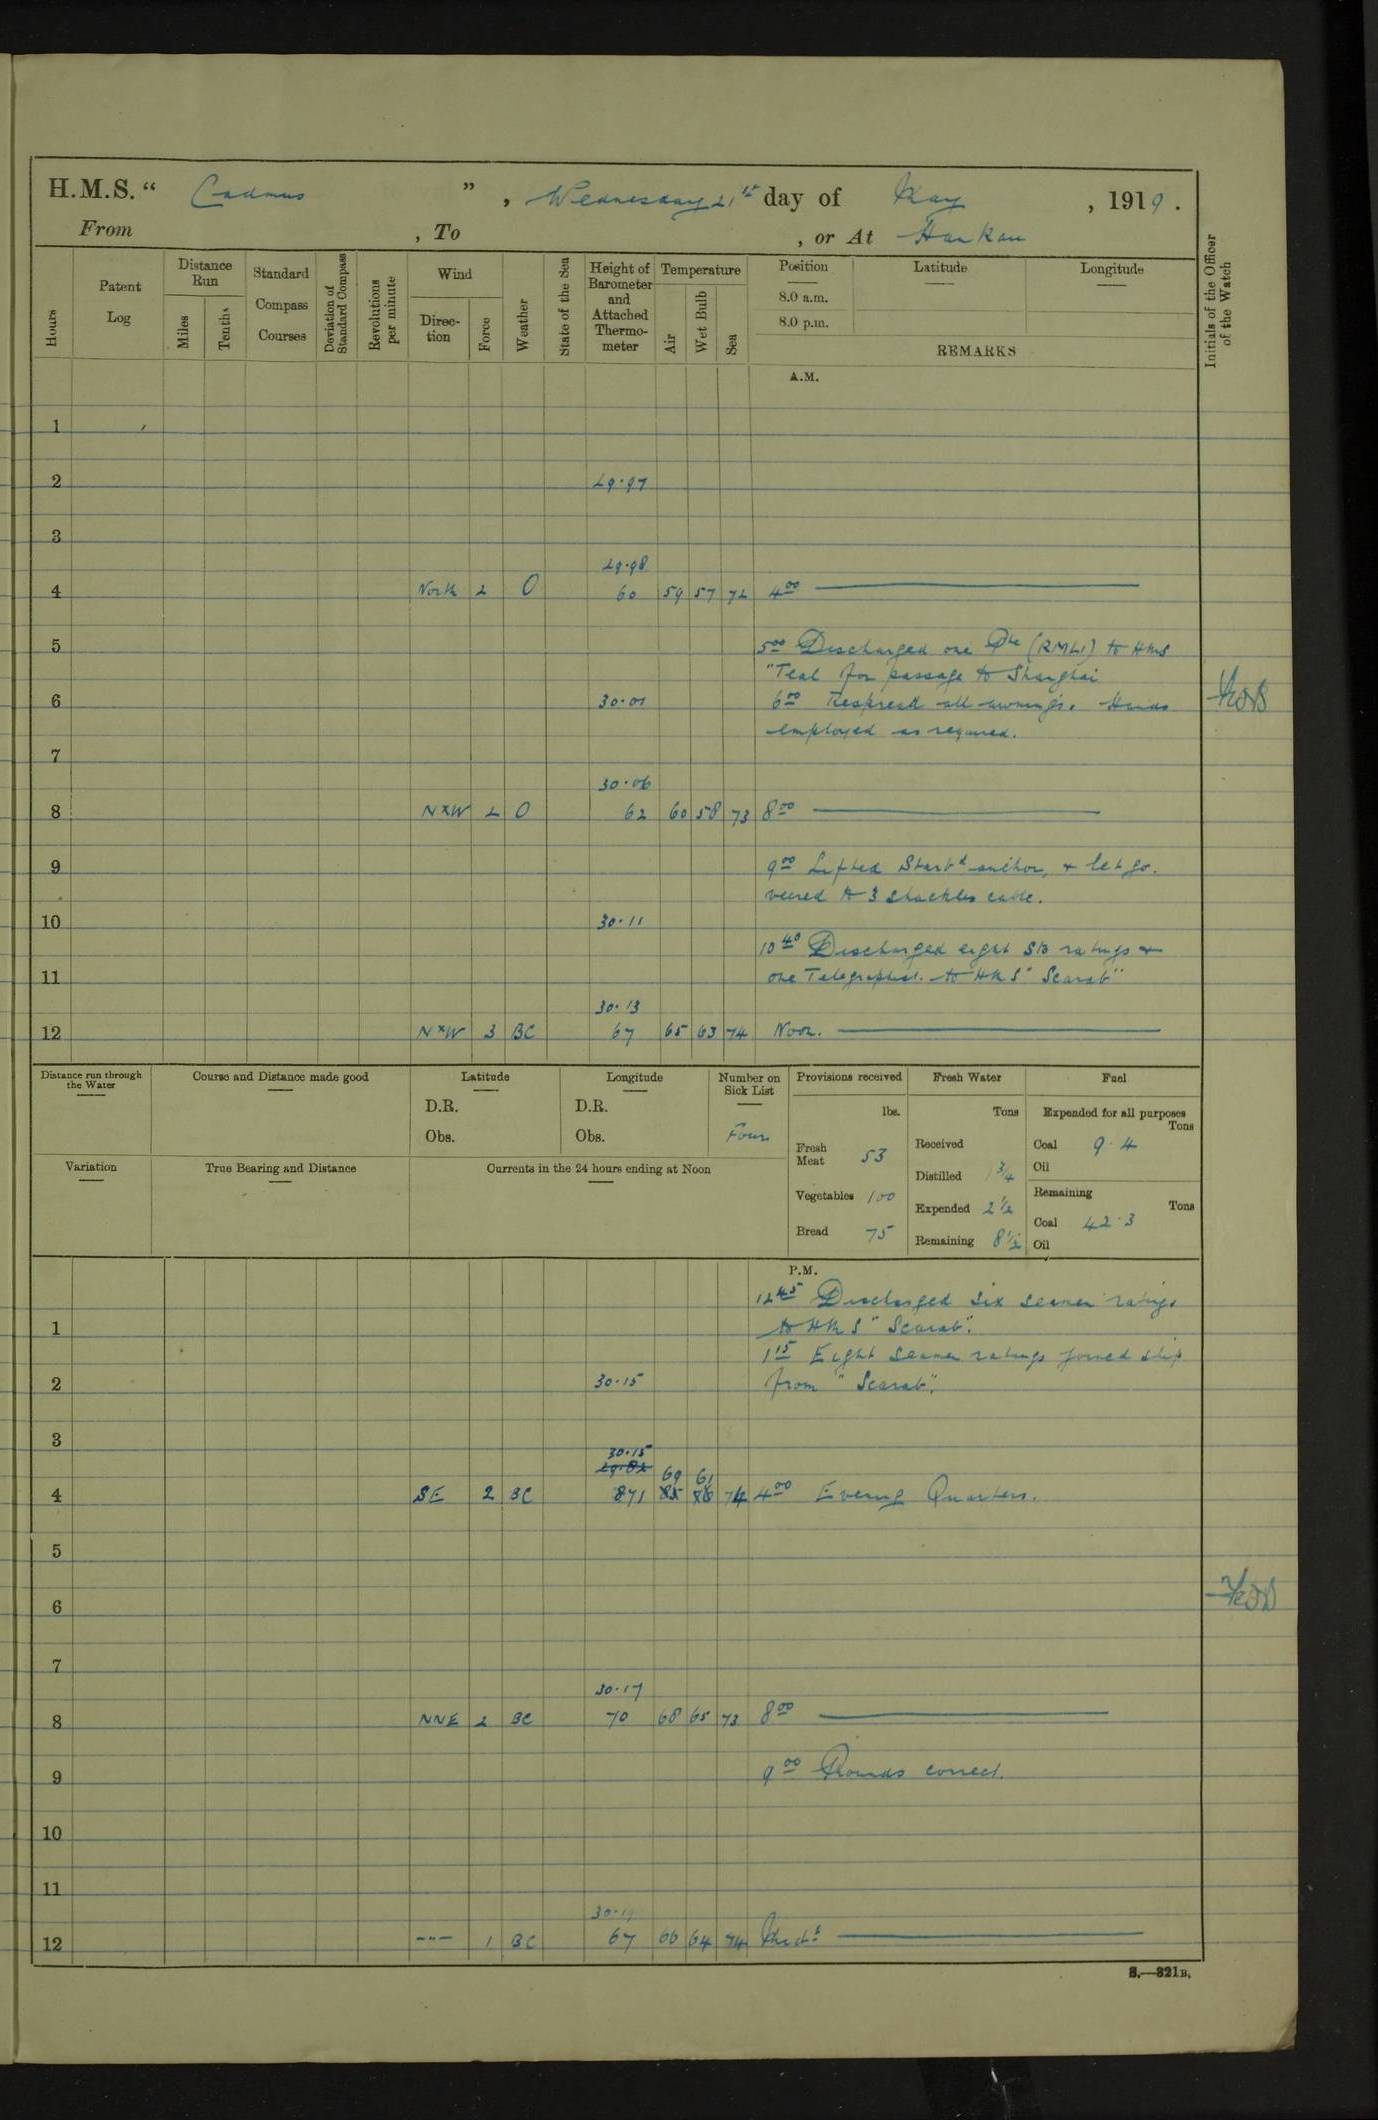 H.M.S. “ Cadmus ” , Wednesday 21st day of May , 1919 .
From , To , or At Hankau
Hours
Patent Log
Distance Run
Miles
Tenths
Standard Compass Courses
Deviation of Standard Compass
Revolutions per minute
Wind
Direc-tion
Force
Weather
State of the Sea
Height of Barometer and Attached Thermo-meter
Temperature
Air
Wet Bulb
Sea
Position
8.0 a.m.
8.0 p.m.
Latitude
Longitude
REMARKS
Initials of the Officer of the Watch
A.M.
1
2 29.97
3
29.98
4 North 2 O 60 59 57 72 4.00
5 5.00 Discharged one Pte (RMLI) to HMS
"Teal for passage to Shanghai
6 30.01 6.00 Respread all awnings. Hands
employed as required.
7
30.06
8 NxW 2 O 62 60 58 73 8.00
9 9.00 Lifted Starbd anchor, + let go.
veered to 3 shackles cable.
10 30.11
10.40 Discharged eight Sto ratings +
11 one Telegraphist. to HMS "Scarab"
30.13
12 NxW 3 BC 67 65 63 74 Noon.
Distance run through the Water
Course and Distance made good
Latitude
D.R.
Obs.
Longitude
D.R.
Obs.
Number on Sick List
Four
Variation
True Bearing and Distance
Currents in the 24 hours ending at Noon
Provisions received
lbs.
Fresh Meat 53
Vegetables 100
Bread 75
Fresh Water
Tons
Received
Distilled 1 3/4
Expended 2 1/2
Remaining 8 1/2
Fuel
Expended for all purposes
Tons
Coal 9.4
Oil
Remaining
Tons
Coal 42.3
Oil
P.M.
12.45 Discharged six seamen ratings
1 to HMS "Scarab".
1.15 Eight seamen ratings joined ship
2 30.15 from "Scarab".
3
30.15
29.82 69 61
4 SE 2 BC 871 85 74 4.00 Evening Quarters.
5
6
7
30.17
8 NNE 2 BC 70 68 65 73 8.00
9 9.00 Rounds correct.
10
11
12 -"- 1 BC 67 66 64 74 Midt.
S.—321B.